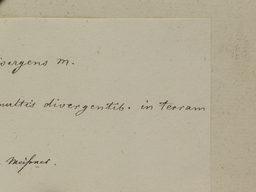 ivergens m.
multis divergentib. in terram
Meißner.